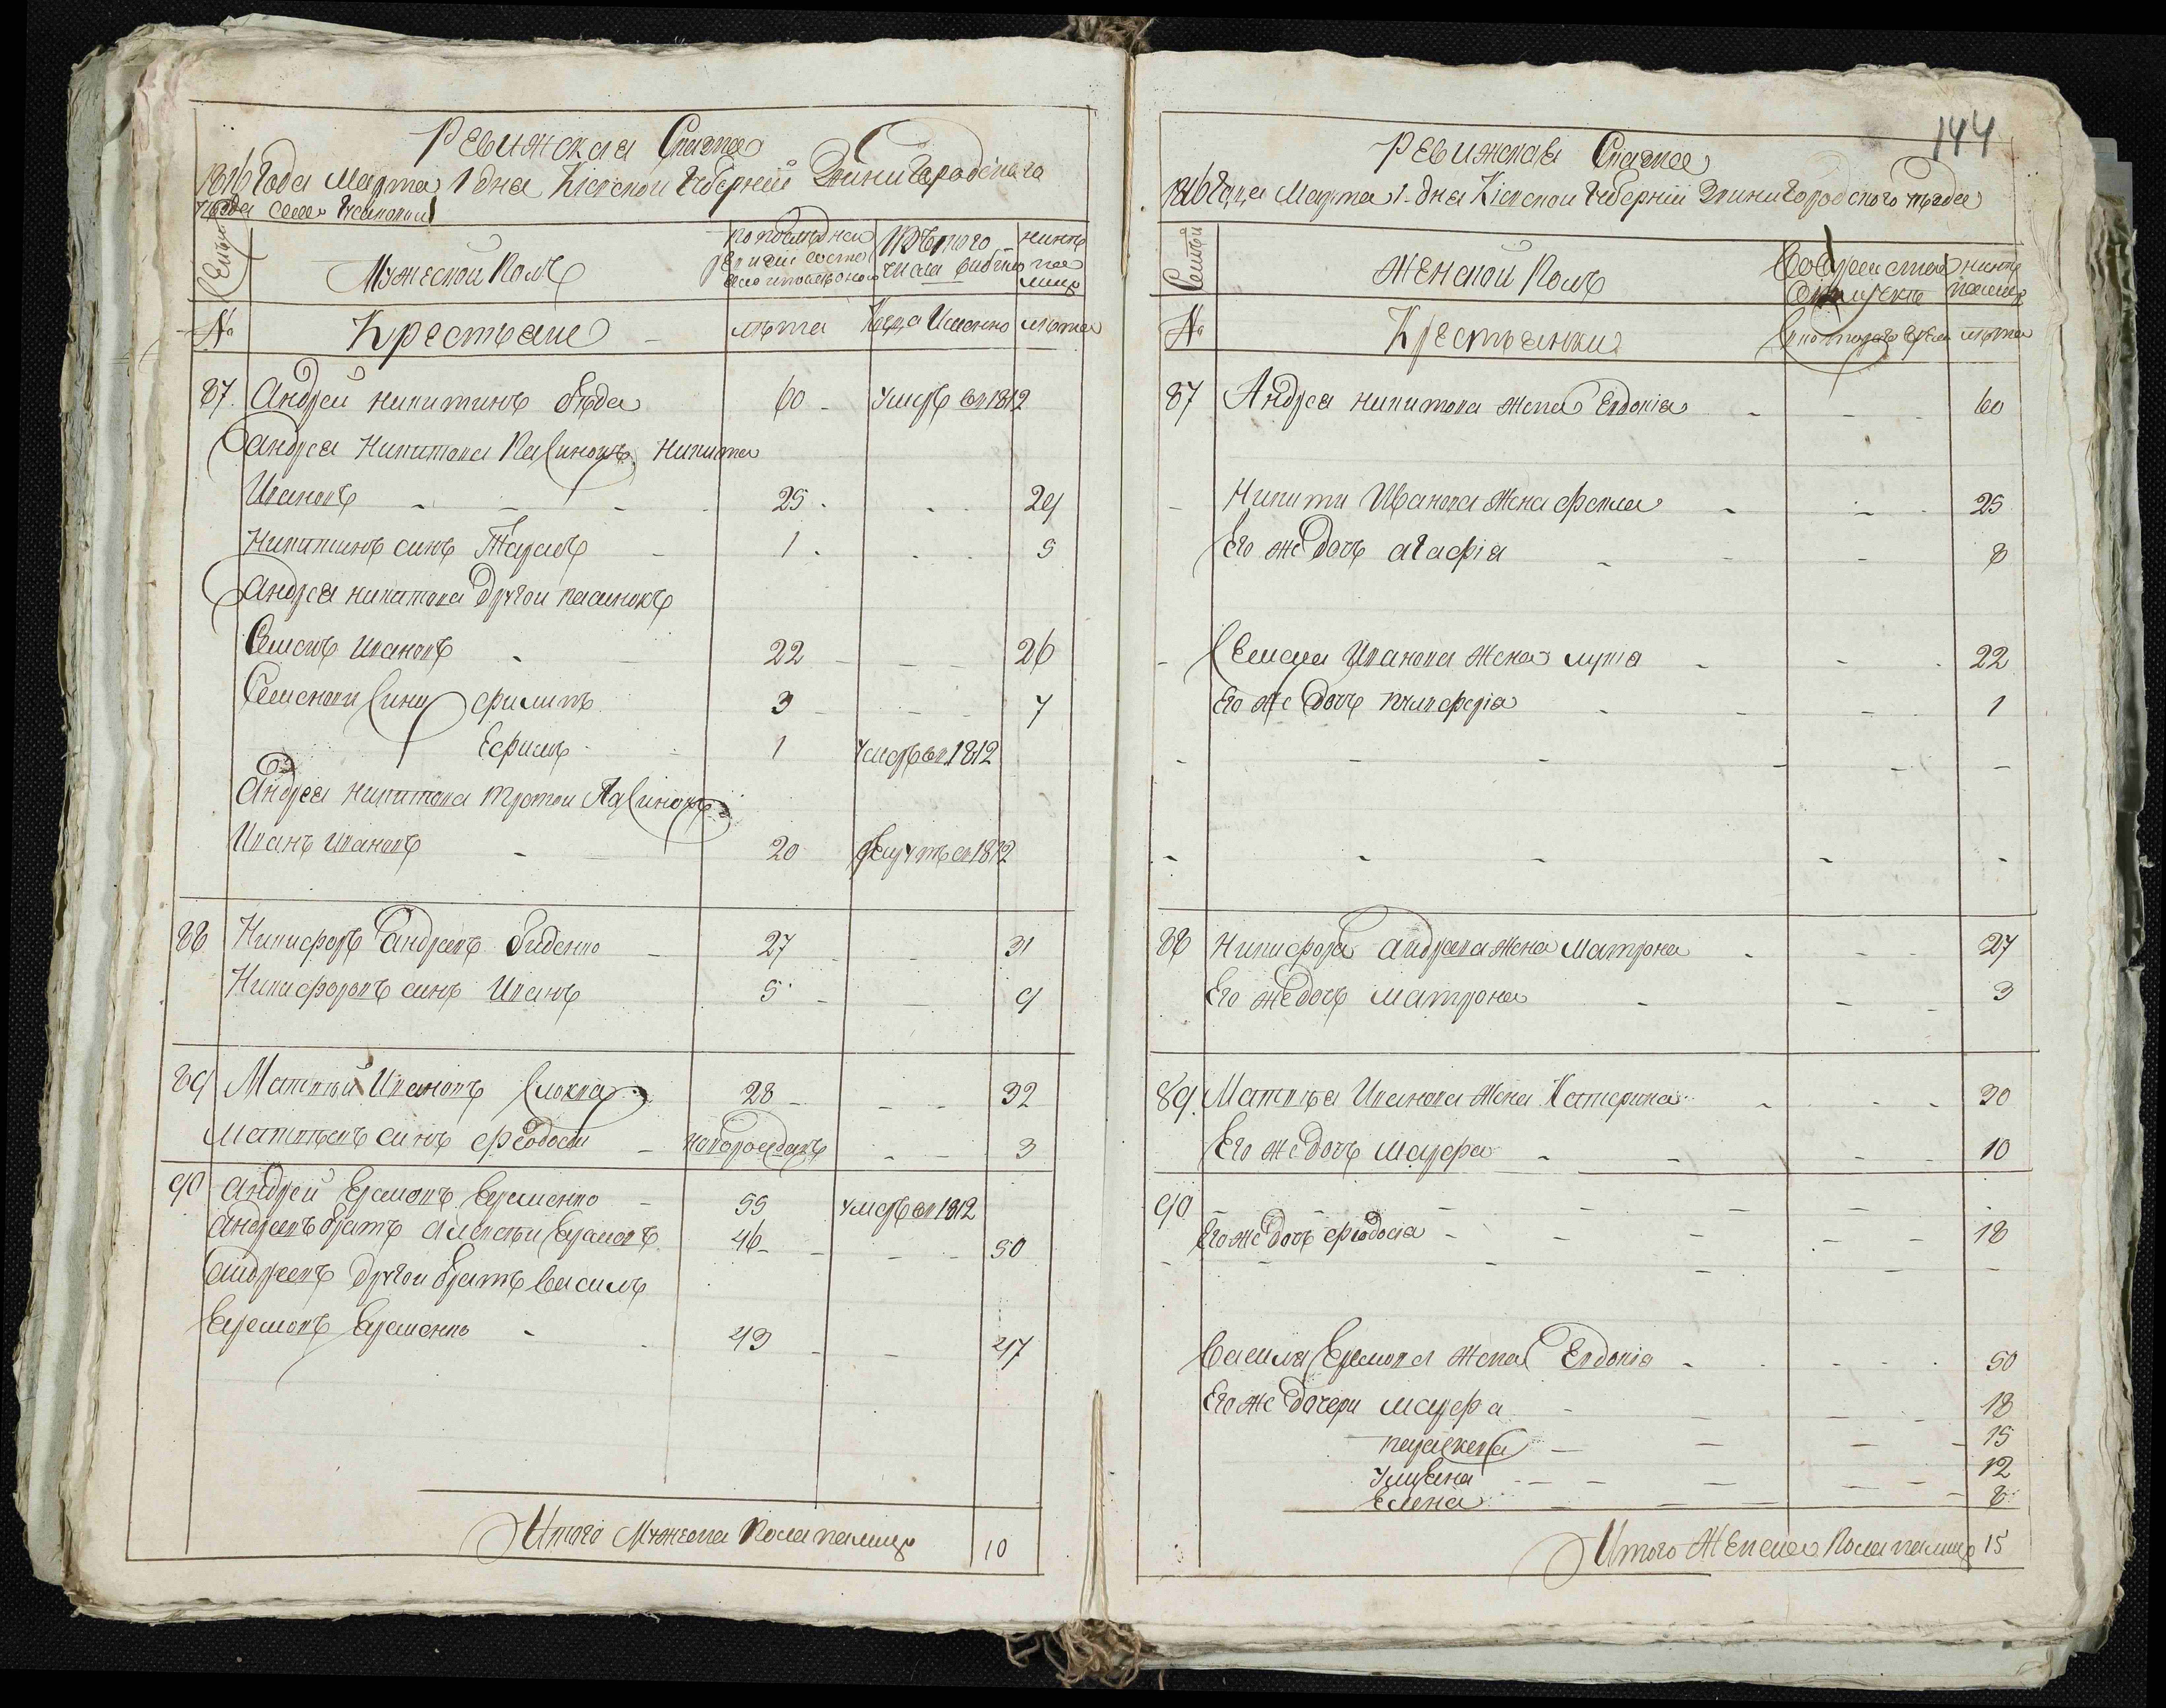 Ревижская Сказка
1816 Года Марта 1 дна Кіевской Губерніи Звинигородского
уезда села
Семьи
Мужеской Полъ
По последней ревизіи состояло
Изъ того числа выбыло
ныне на лицо
№
Крестьяне
лета
Когда Именно
лета
87. Андрей никитинъ беда 60 умеръ въ 1812
Андрея Никитова Пасинокъ Никита
Ивановъ 25 29
Никитинъ синъ Тарасъ 1 5
Андрея никитова другои пасинокъ
Семенъ Ивановъ 22 26
Семенови Сини филипъ 3 7
Ефимъ 1 умеръ въ 1812
Андрея никитова третои Пасинокъ
Иванъ Ивановъ 20 рекрутъ въ 1812
88 Никифоръ Андреевъ биденко 27 31
Никифоровъ синъ Иванъ 5 9
89 Матвей Ивановъ 28 32
Матвеевъ синъ феодосіи новорожденъ 3
90 Андрей Еремовъ Еременко 55 умеръ въ 1812
Андреевъ братъ Алексеи Еремовъ 46 50
Андреевъ другои братъ василь
Еремовъ Еременко 43 47
Итого Мужеска Пола налицо 10
144
Ревижская Сказка
1816 Года Марта 1 дна Кіевской Губерніи Звинигородского уезда
Семьи
Женской Полъ
ныне налицо
№
Крестьянки
лета
87 Андрея никитова жена Евдокіа 60
Никити Иванова жена фекла 25
Его же дочъ агафіа 8
Семена Иванова жена 22
Его же дочъ 1
88 Никифора андреева жена Матрона 27
Его же дочъ матрона 3
89. Матвея Иванова жена Катерина 30
Его же дочъ марфа 10
90
Его же дочъ феодосіа 18
Василя Еремова жена Евдокіа 50
Его же дочери марфа 18
параскева 15
улияна 12
Елена 8
Итого Женска Пола налицо 15